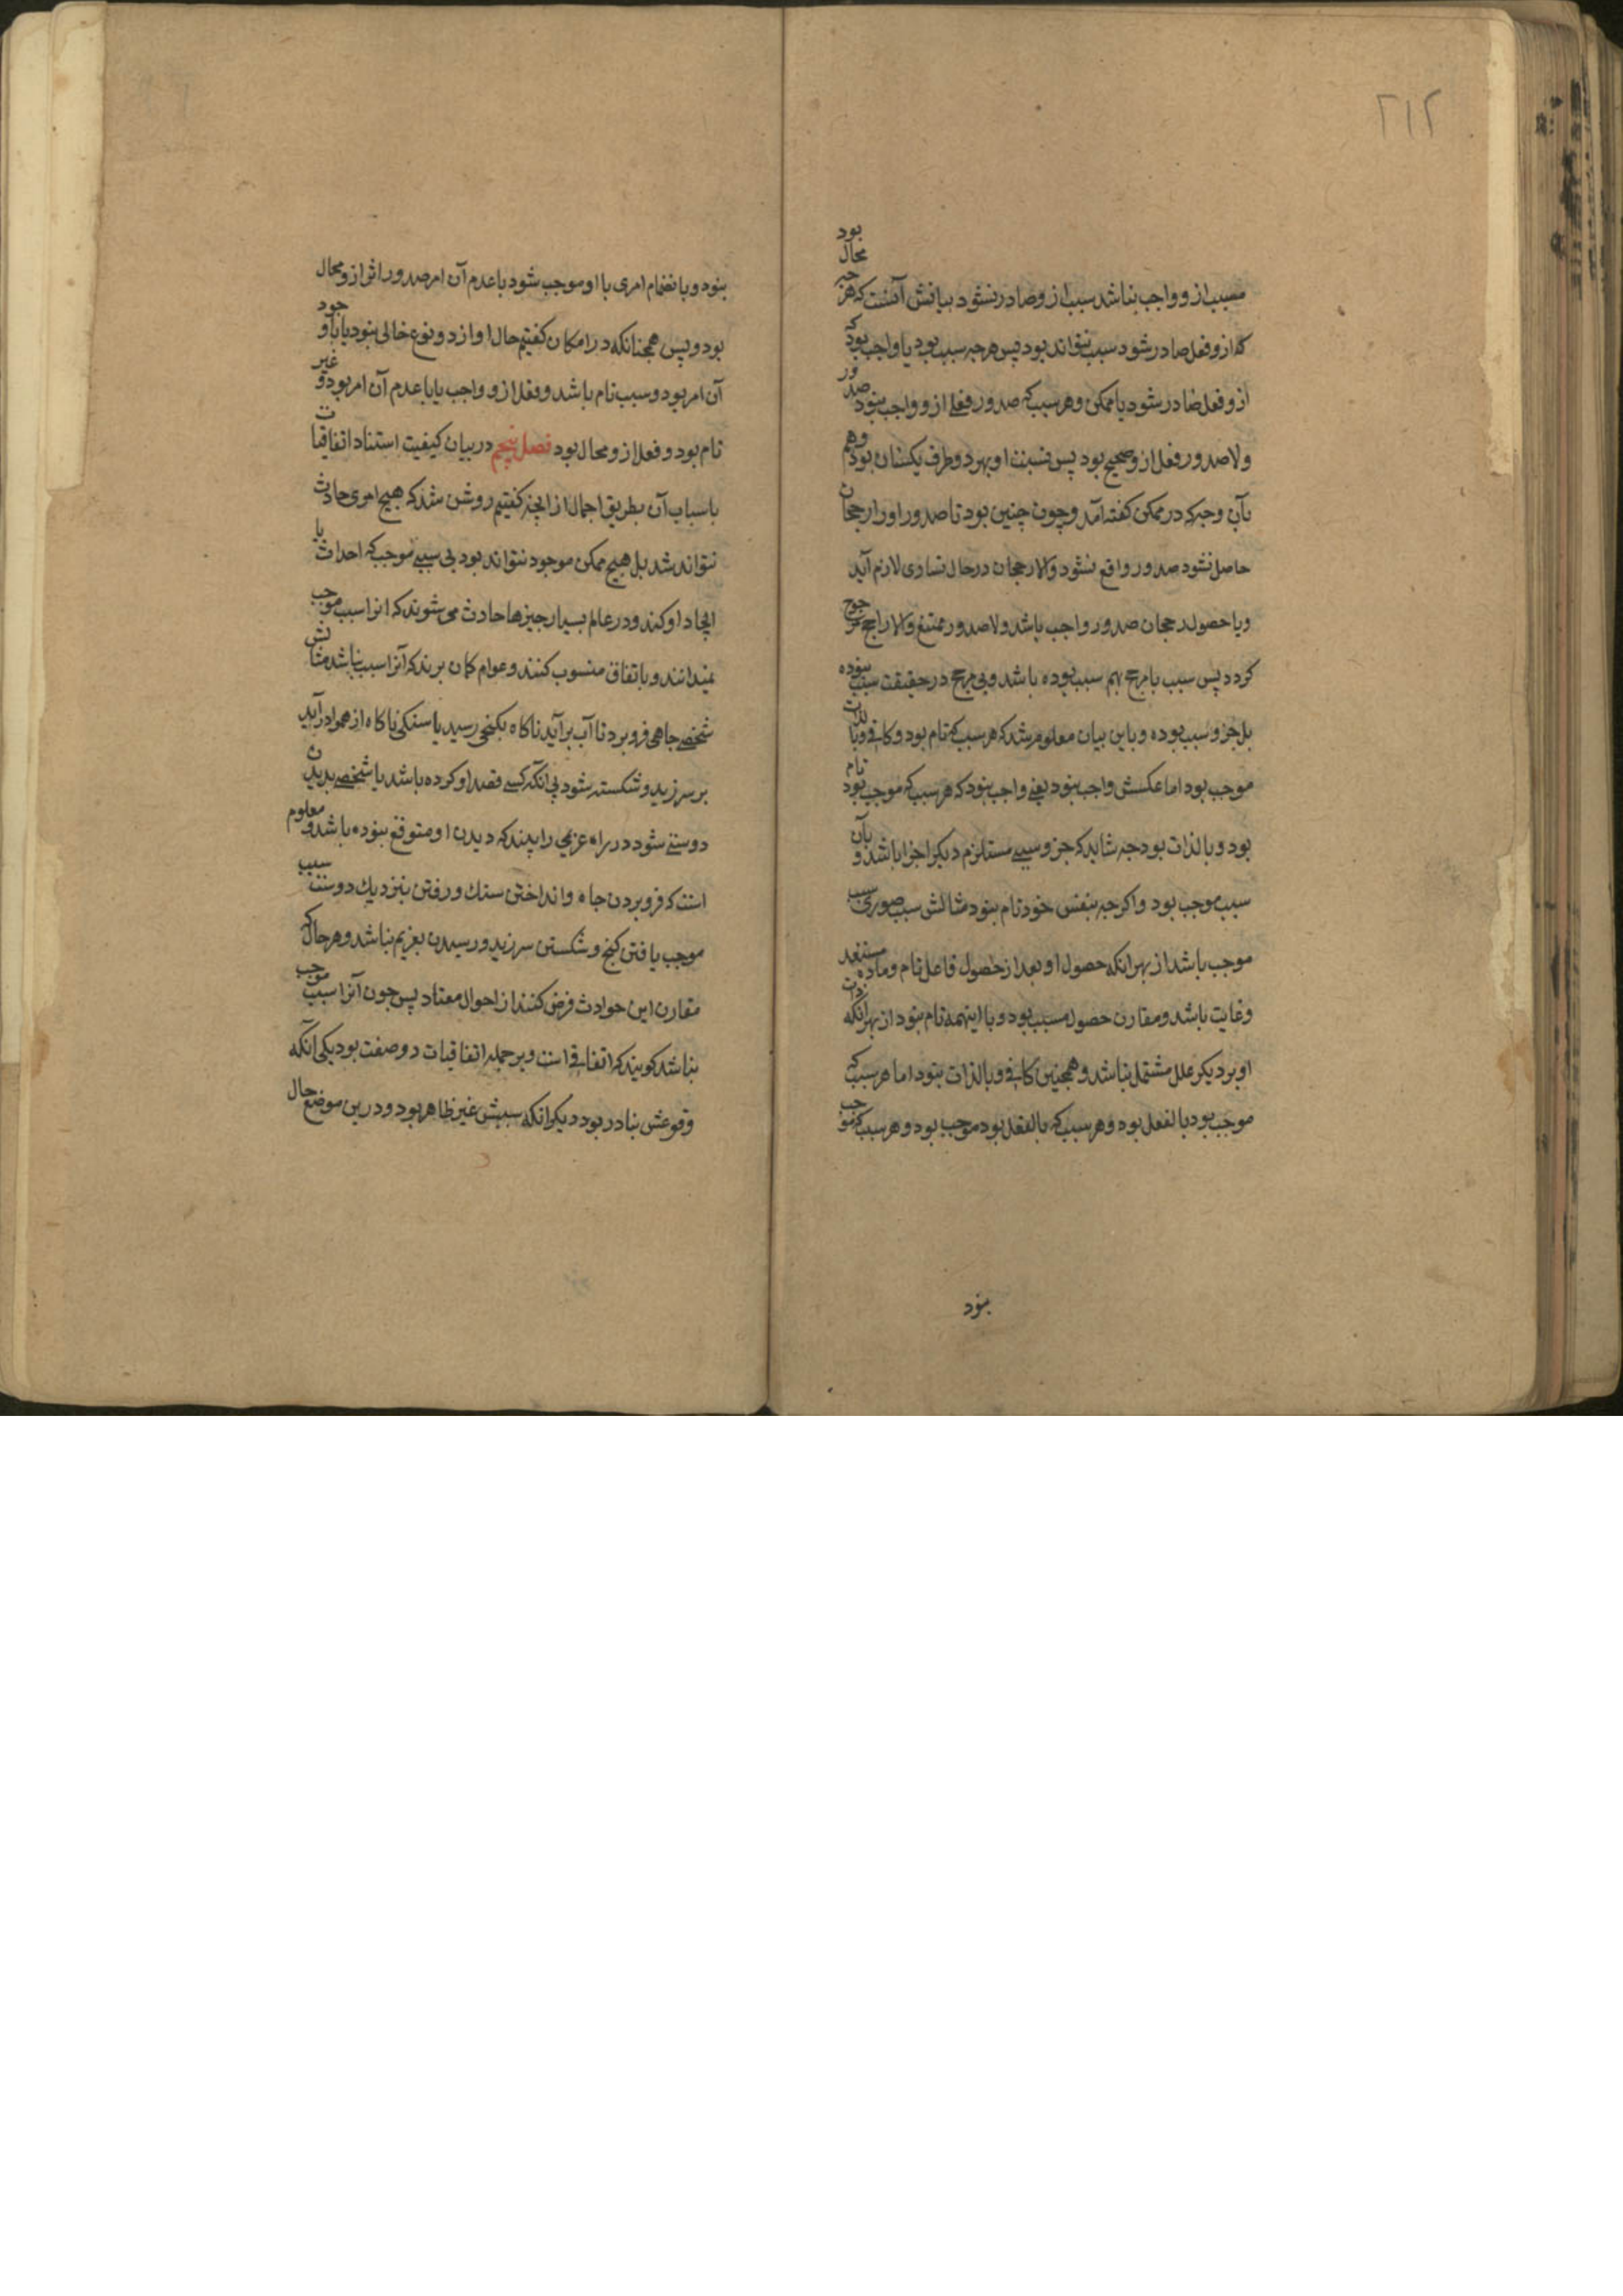 ۲۱۲
مسبب ازو واجب نباشد سبب ازو صادر نشود بیانش آنست که هر چه محال بود
که ازو فعل صادر شود سبب نتواند بود پس هرچه سبب بود یا واجب بود که
ازو فعل صادر شود یا ممکن و هر سبب که صدور فعلی ازو واجب نبود صدور
ولا صدور فعل ازو صحیح بود پس نسبت او بهر دو طرف یکسان بود و هم
بآن وجه که در ممکن گفته آمد و چون چنین بود تا صدور اورا رجحان
حاصل نشود صدور واقع نشود والا رجحان در حال تساوی لازم آید
و با حصول رجحان صدور واجب باشد ولا صدور ممتنع والا راجح مرجوح
کردد پس سبب با مرجح بهم سبب بوده باشد و بی مرجح در حقیقت سبب نبوده
بل جزو سبب بوده و باین بیان معلوم شد که هر سبب که تام بود و کافی و بالذات
موجب بود اما عکسش واجب نبود یعنی واجب نبود که هر سبب که موجب بود تام
بود و بالذات بود چه شاید که جزو سببی مستلزم دیکر اجزا باشد و بآن
سبب موجب بود و اکرچه بنفس خود تام نبود مثالش سبب صوری سبب
موجب باشد از بهر انکه حصول او بعد از حصول فاعل تام و ماده مستعد
وغایت باشد و مقارن حصول مسبب بود و با اینهمه تام نبود از بهر انکه
او بر دیکر علل مشتمل نباشد و همچنین کافی و بالذات نبود اما هر سبب که
موجب بود بالفعل بود و هر سبب که بالفعل بود موجب بود و هر سبب که موجب
نبود
نبود و بانضمام امری با او موجب شود با عدم آن امر صدور اثر ازو محال
بود و پس همچنانکه در امکان کفتیم حال او از دو نوع خالی نبود یا با وجود
آن امر بود و سبب تام باشد و فعل ازو واجب یا با عدم آن امر بود و غیر
تام بود و فعل ازو محال بود فصل پنجم در بیان کیفیت استناد اتفاقیات
باسباب آن بطریق اجمال از انچه کفتیم روشن شد که هیچ امری حادث
نتواند شد بل هیچ ممکن موجود نتواند بود بی سببی موجب که احداث یا
ایجاد او کند و در عالم بسیار چیزها حادث می شوند که انرا سبب موجب
نمیدانند و باتفاق منسوب کنند و عوام کمان برند که آنرا سبب نباشد مثالش
شخصی چاهی فرو برد تا آب برآید ناکاه بکنجی رسید یا سنکی ناکاه از هوا درآید
بر سر زید و شکسته شود بی آنکه کسی قصد او کرده باشد یا شخصی بدیدن
دوستی شود در راه غریمی را بیند که دیدن او متوقع نبوده باشد و معلوم
است که فرو بردن چاه و انداختن سنك و رفتن بنزدیك دوست سبب
موجب یافتن کنج و شکستن سر زید و رسیدن بغریم نباشد و هر حال که
مقارن این حوادث فرض کنند از احوال معتاد پس چون آنرا سبب موجب
نباشد کویند که اتفاقی است و بر جمله اتفاقیات دو صفت بود یکی آنکه
وقوعش نبادر بود دیکر انکه سببش غیر ظاهر بود و درین موضع حال